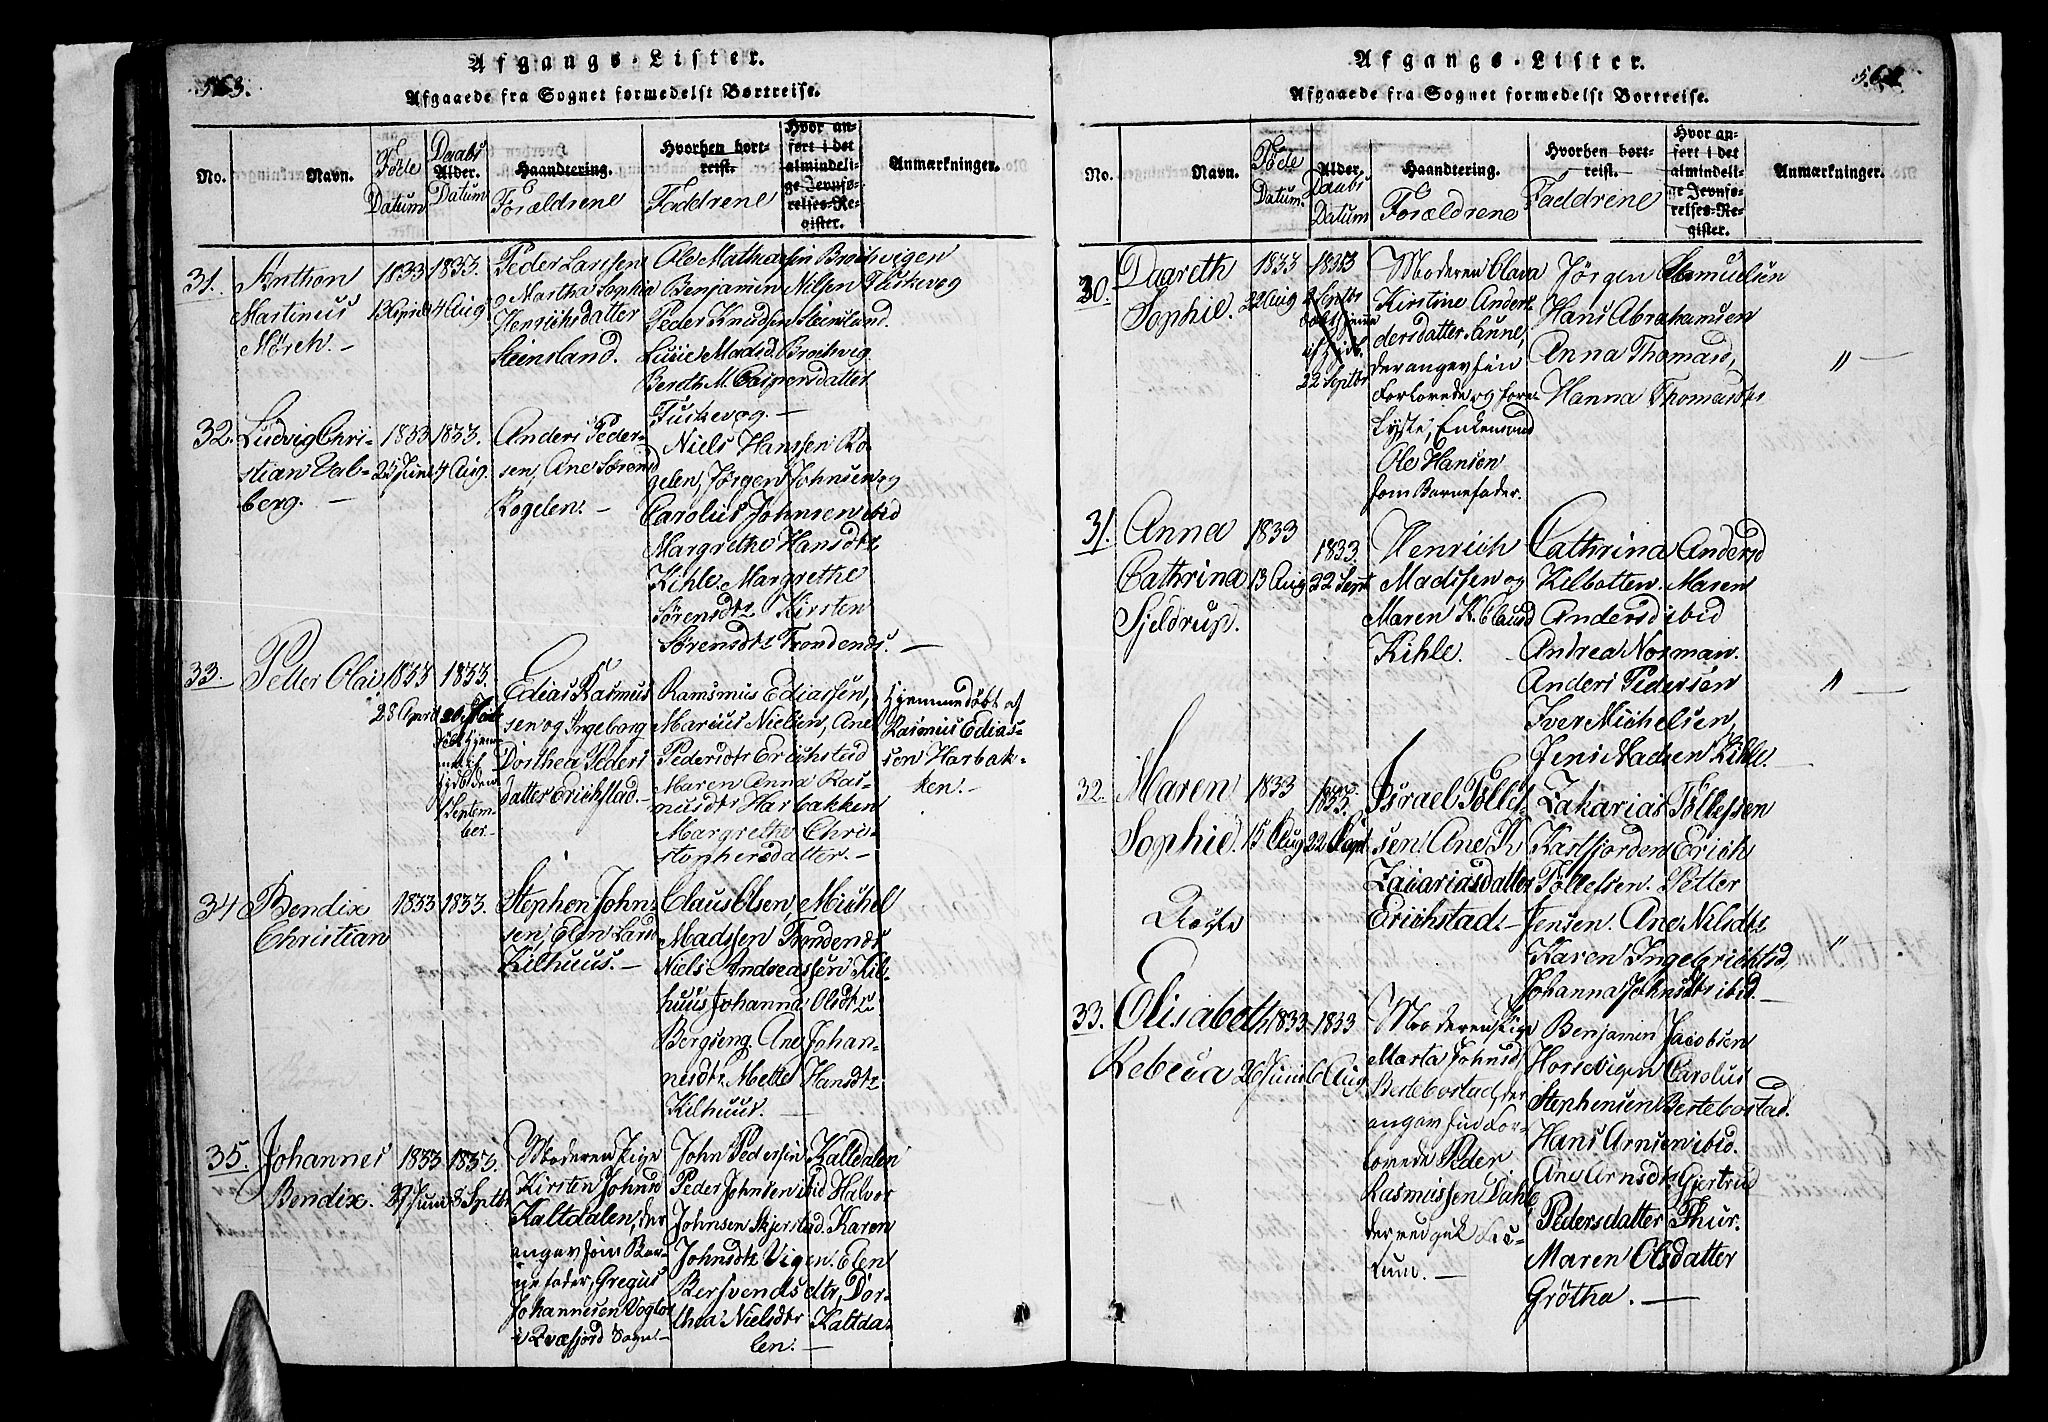 563.
Afgangs-Lister.
Afgaaede fra Sognet formedelst Bortreise.
No.
Navn.
Føde
Datum
Daabs
Alder.
Datum
Haandtering.
Forældrene
Hvorhen bort-
reist.
Faddrene
Hvor an-
ført i det
almindeli-
ge Jevnfø-
relses-Re-
gister.
Anmærkninger.
31.
Anthon
Martinus
Mörch.
1833
13 April
1833.
4 Aug
Peder Larssen
Martha Sophia
Henrichsdatter
Steinsland.
Ole Mathiassen Brochvigen
Benjamin Nilsen Fuskevog
Peder Knudsen Steinsland.
Lucie Madsd. Brochvig.
Berdt M. Caspersdatter
Fuskevog. —
32.
Ludvig Chri-
stian Val-
berg. —
1833
25 Juni
1833.
4 Aug.
Anders Peder-
sen, Ane Sörensd
Rogelen. —
Niels Hanssen Ro-
gelen, Jörgen Johnsen og
Carolus Johnsen ibid
Margrethe Hansdtr
Kihle. Margrethe
Sörensdtr Kirsten
Sörensdtr Trondenes. —
33.
Petter Olai
1833
28 April
1833.
døbt hjem-
me
den
1 Septem-
ber. —
Edias Rasmus
sen og Ingeborg
Dorthea Peders
datter Erichstad. —
Ramsmus Ediassen,
Marcus Nielsen, Ane
Pedersdtr Erichstad
Maren Anna Ras-
musdtr Harbakken
Margrethe Chris-
stophersdatter. —
Hjemmedøbt af
Rasmus Edias-
sen Harbak-
ken. —
34
Bendix
Christian
1833
1833.
Stephen John-
sen, Elen Larsd
Kilhuus. —
Claus Olsen, Michel
Madssen Trondenæs
Niels Andreassen Kil-
huus Johanna Olsdtr
Bergseng. Ane Johan-
nesdtr Mette Hansdtr
Kilhuus. —
35.
Johannes
Bendix.
1833
27 Juni
1833.
8 Septbr
Moderen Pige
Kirsten Johnsd
Kaltdalen, der
angav som Bar-
nefader, Gregus
Johannesen Voglos
i Qvæfjord Sogn. —
John Pedersen Kalldalen
Peder Johnsen ibid Halvor
Johnsen Skjerstad. Karen
Johnsdtr Vigen. Elen
Bersvendsdtr, Dor-
thea Nielsdtr Kaltda-
len. —
564
Afgangs-Lister.
Afgaaede fra Sognet formedelst Bortreise.
No.
Navn.
Føde
Datum.
Alder.
Daabs
Datum
Haandtering.
Forældrene
Hvorhen bort-
reist.
Faddrene
Hvor an-
ført i det
almindeli-
ge Jevnfø-
relses-Re-
gister.
Anmærkninger.
30.
Dagreth
Sophie.
1833
22 Aug
1833
2 Septbr
døbt hjemme
22 Septbr
Moderen Olava
Kirstine Ander-
dersdatter Aune,
der angav sin
Forlovede og
Enkemand
Ole Hansen
som Barnefader.
Jörgen Samuelsen
Hans Abrahamsen
Anna Thomasd,
Hanna Thomasdtr
" —
31.
Anna
Cathrina
Sjeldrup.
1833
13 Aug
1833.
22 Sept
Henrich
Madssen og
Maren K. Clausd
Kihle.
Cathrina Andersd
Kilbotten. Maren
Andersd ibid
Andrea Norman.
Anders Pedersen
Iver Michelsen,
Jens Madsen Kihle.
" —
32.
Maren
Sophie.
1833
15 Aug
1833.
22 Sept
Israel Töllef-
sen, Ane K
Zacariasdatter
Erichstad. —
Zakarias Töllefsen
Kastfjorden Erich
Töllefsen. Petter
Jensen. Ane Nilsdtr
Karen Ingebrichtsd,
Johanna Johnsdtr ibid. —
"
33.
Elisabeth
Rebecca
1833
26 Juni
1833
6 Aug
Moderen Pige
Marta Johnsd,
Bedebostad, der
angav sin For-
lovede Peder
Rasmussen Dahle
der ved
Benjamin Jacobsen
Horsevigen Carolus
Stephensen Bertebostad.
Hans Arnsen ibid.
Ane Arnsdtr Gjertrud
Pedersdatter Thur.
Maren Olsdatter
Grötha. —